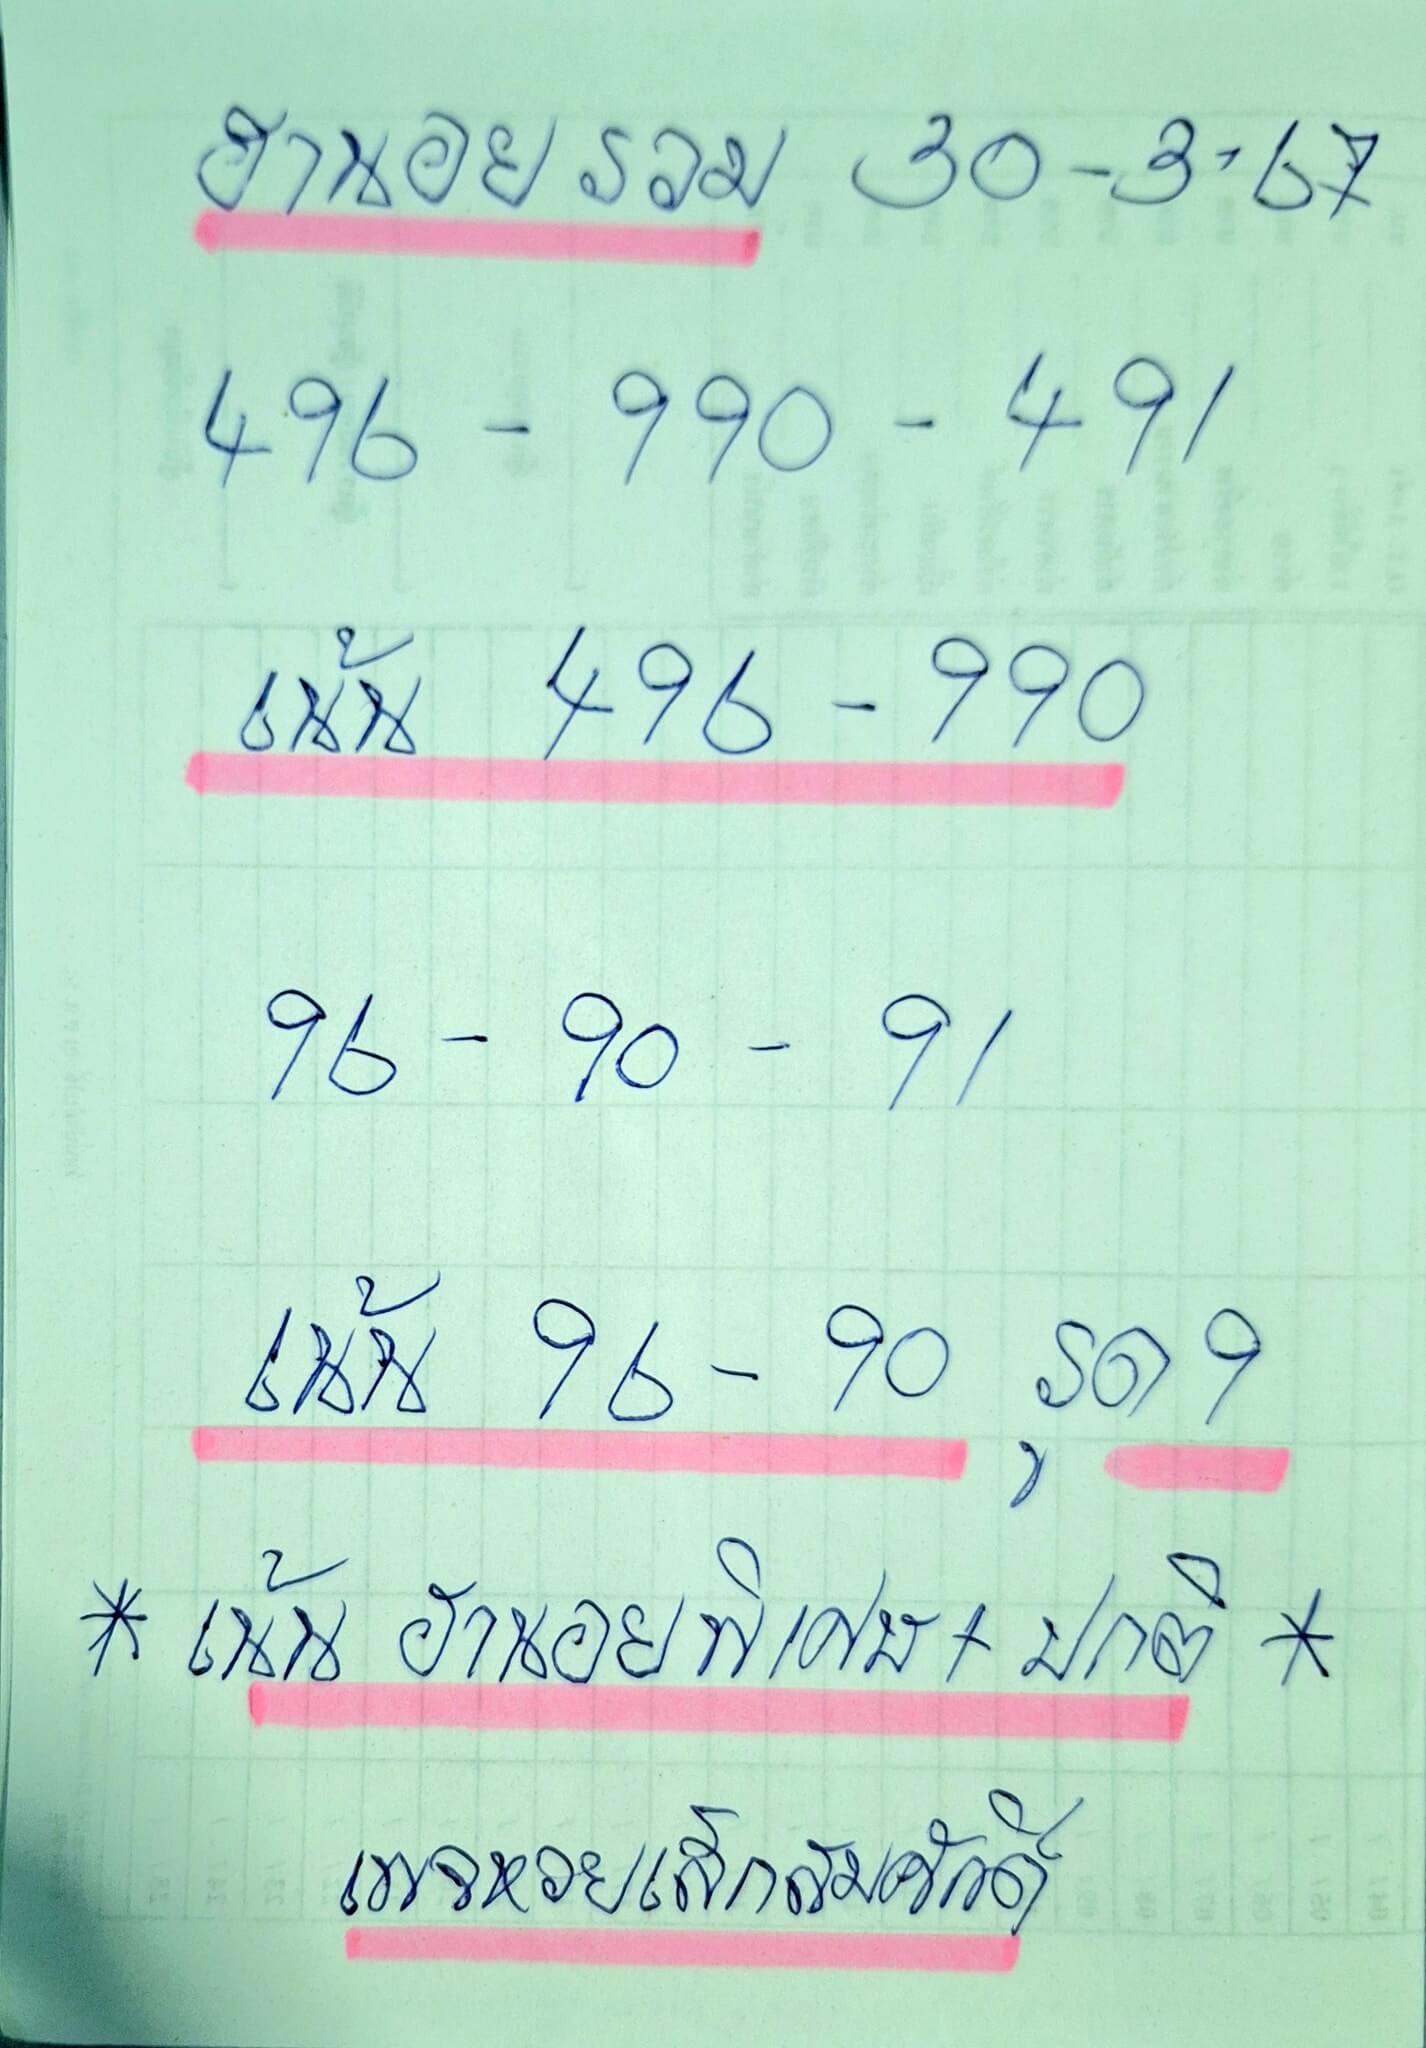 ฮานอย รวม 30-3-67
496 - 990 - 491
เน้น 496 - 990
96 - 90 - 91
เน้น 96 - 90 , รูด 9
* เน้น ฮานอยพิเศษ + ปกติ *
เพจหวยเล็กสมศักดิ์